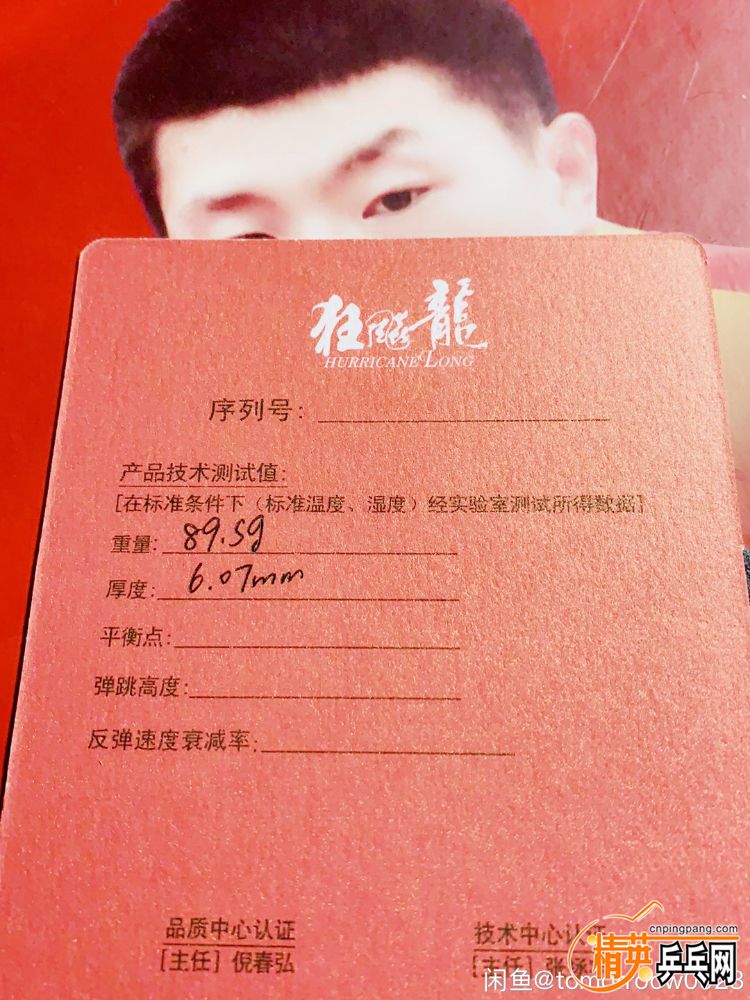 狂飚龍
HURRICANE LONG
序列号：
产品技术测试值：
[在标准条件下（标准温度、湿度）经实验室测试所得数据]
重量：89.5g
厚度：6.07mm
平衡点：
弹跳高度：
反弹速度衰减率：
品质中心认证
[主任] 倪春弘
技术中心认证
[主任] 张
cnpingpang.com
精英乒乓网
闲鱼@tom